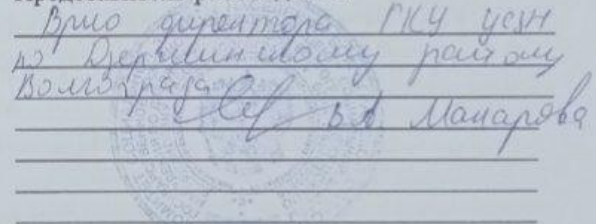 Врио директора ГКУ УСЗН
по Дзержинскому району
Волгограда
В.А. Макарова